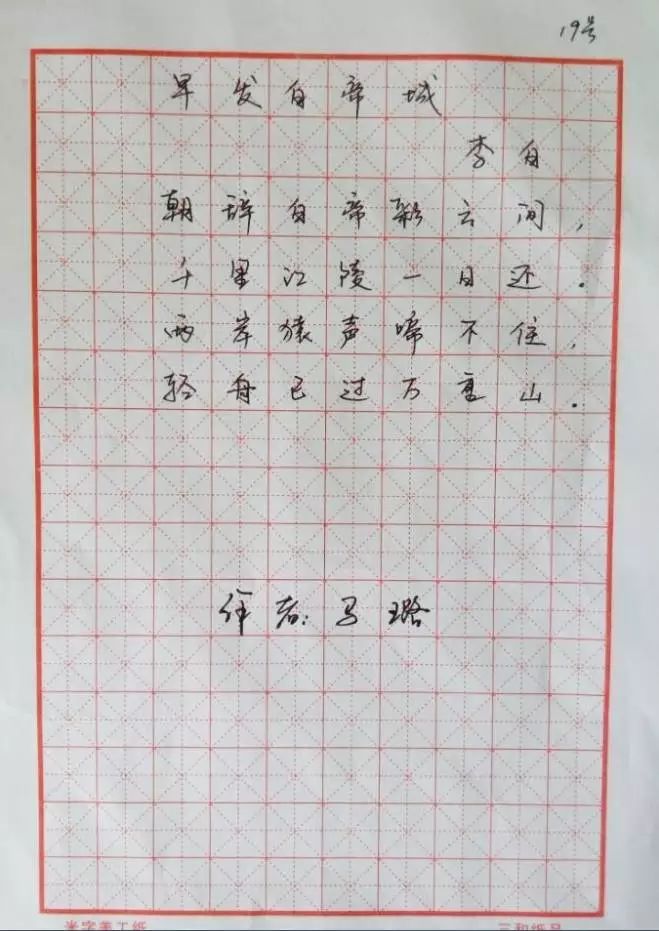 19号
早发白帝城
李白
朝辞白帝彩云间,
千里江陵一日还.
两岸猿声啼不住,
轻舟已过万重山.
作者:马璐